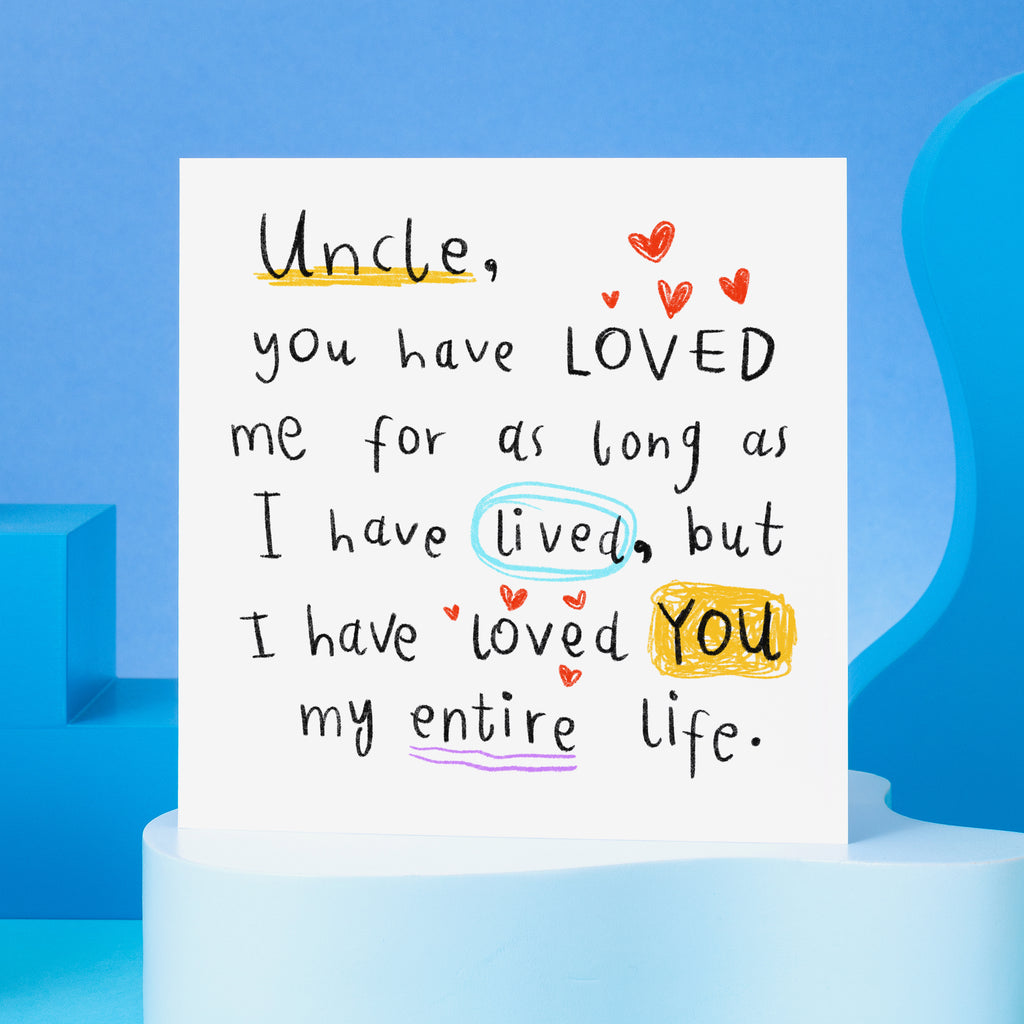 Uncle,
you have LOVED
me for as long as
I have lived, but
I have loved YOU
my entire life.